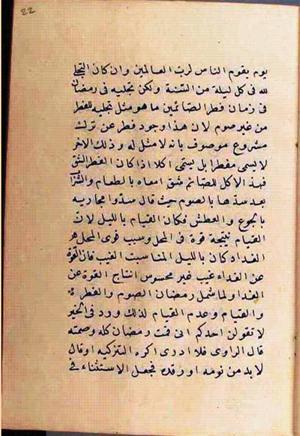 22
يوم يقوم الناس لرب العالمين وان كان التجلي
لله في كل ليلة من السنة ولكن تجليه في رمضان
في زمان فطر الصائمين ما هو مثل تجليه للمفطر
من غير صوم لان هذا وجود فطر عن ترك
مشروع موصوف بانه لا مثل له وذلك الاخر
لا يسمى مفطرا بل يسمى اكلا اذا كان الفطر الشق
فهذا الاكل للصائم شق امعاه بالطعام والشراب
بعد سدها بالصوم حيث قال سدوا مجاريه
بالجوع والعطش فكان القيام بالليل لان
القيام نتيجة قوة في المحل وسبب قوى المحل هو
الغذا وكان بالليل لمناسبت الغيب فان القوة
عن الغذاء غيب غير محسوس انتاج القوة عن
الغذا ولما شمل رمضان الصوم والفطر
والقيام وعدم القيام لذلك ورد في الخبر
لا تقولن احدكم اني قمت رمضان كله وصمته
قال الراوي فلا ادري اكره التزكية او قال
لا بد من نومة او رقدة فجعل الاستثناء في